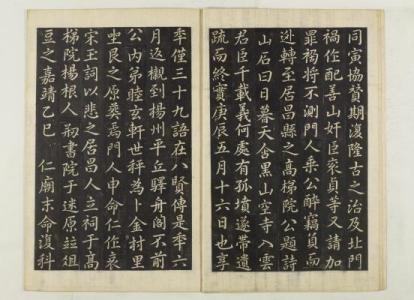 同寅協贊期復隆古之治及北門
禍作配善山奸臣衮貞等又請加
罪禍將不測門人乘公醉竊負而
迯轉至居昌縣之高梯院公題詩
山石曰日暮天含黑山空寺入雲
君臣千載義何處有孤墳遂帶遺
疏而終實庚辰五月十六日也享
年僅三十九語在八賢傳是年六
月返櫬到揚州平丘驛舟閣不前
公内弟睦玄軒世秤為卜金村里
坐艮之原葬焉門人申命仁作哀
宋玉詞以悲之居昌人立祠于高
梯院楊根人剏書院于迷原並俎
豆之嘉靖乙巳　仁廟末命復科